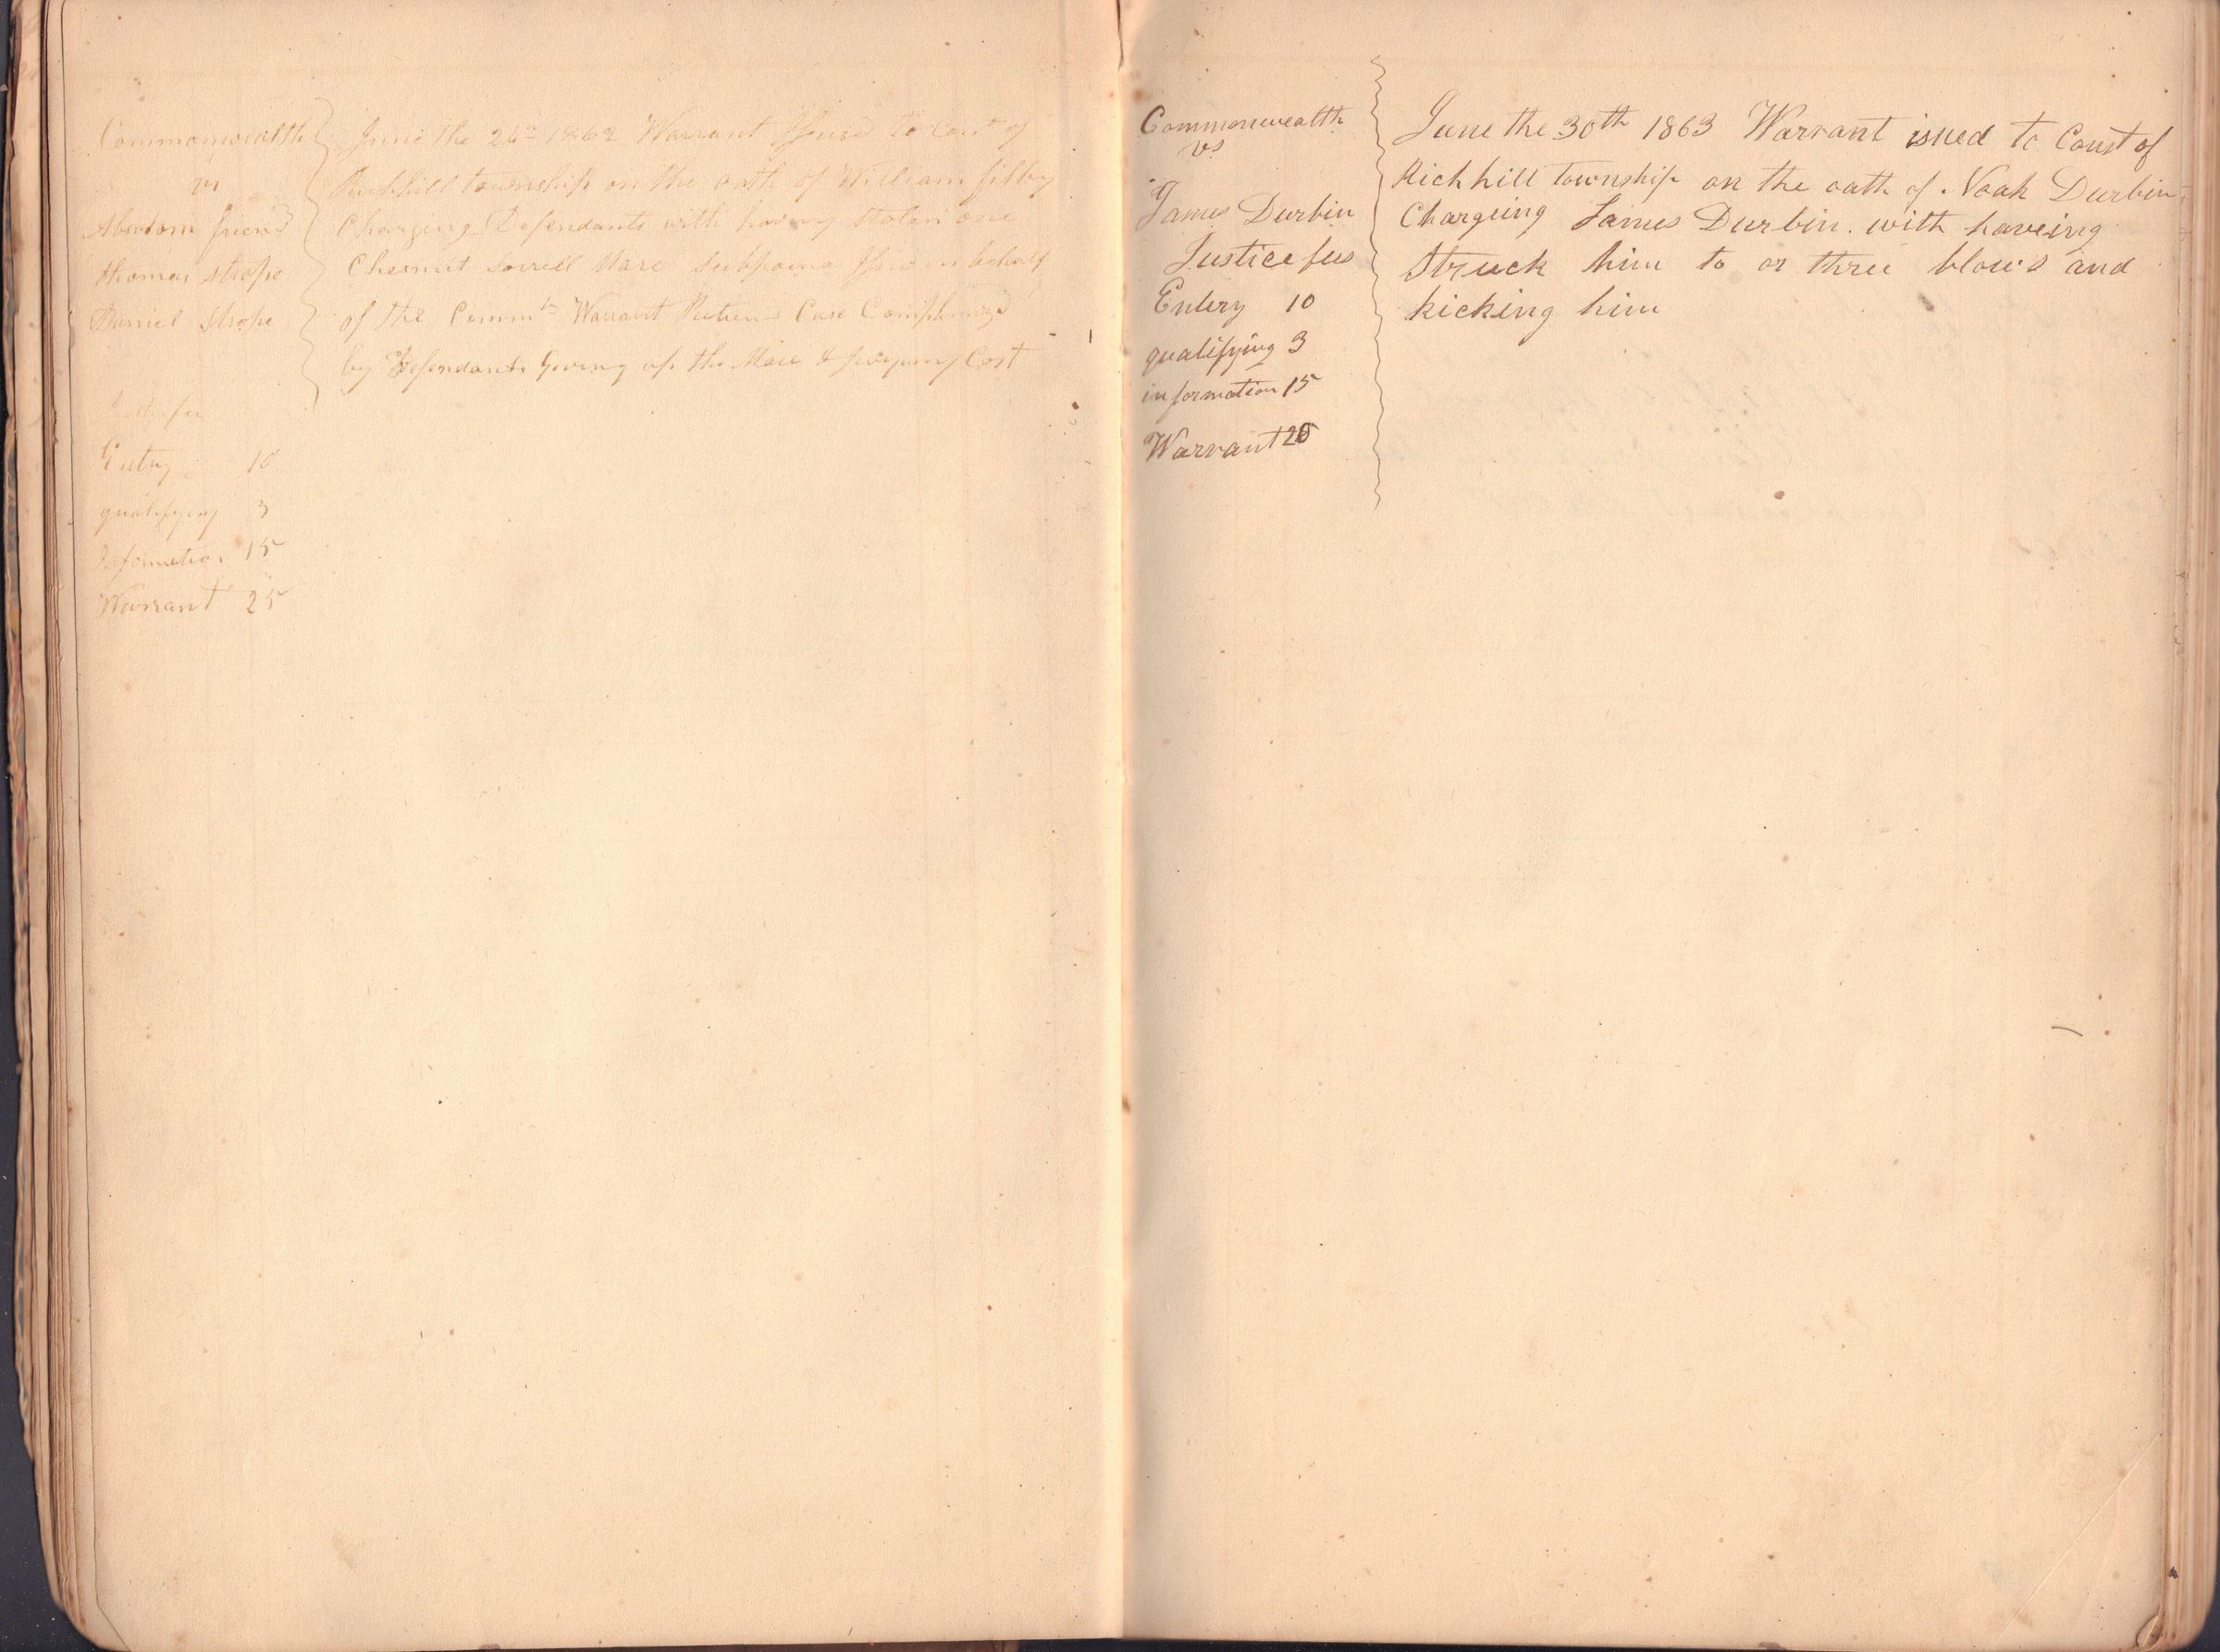 Commonwealth
vs
friend
thomas Strope
Daniel Strope
June the 1862 Warrant Issued to Const of
Richhill township on the oath of William
Charging Defendants with having stolen one
Chesnut Sorrell Mare Subpoena Issued in behalf
of the Commth Warrant Returned Case
by Defendants Giving up the Mare & paying Cost
Entry 10
qualifying 3
Information 15
Warrant 25
Commonwealth
vs
James Durbin
Justice fees
Entery 10
qualifying 3
information 15
Warrant 25
June the 30th 1863 Warrant issued to Const of
Richhill township on the oath of Noah Durbin
Chargeing James Durbin. with haveing
Struck him to or three blows and
kicking him